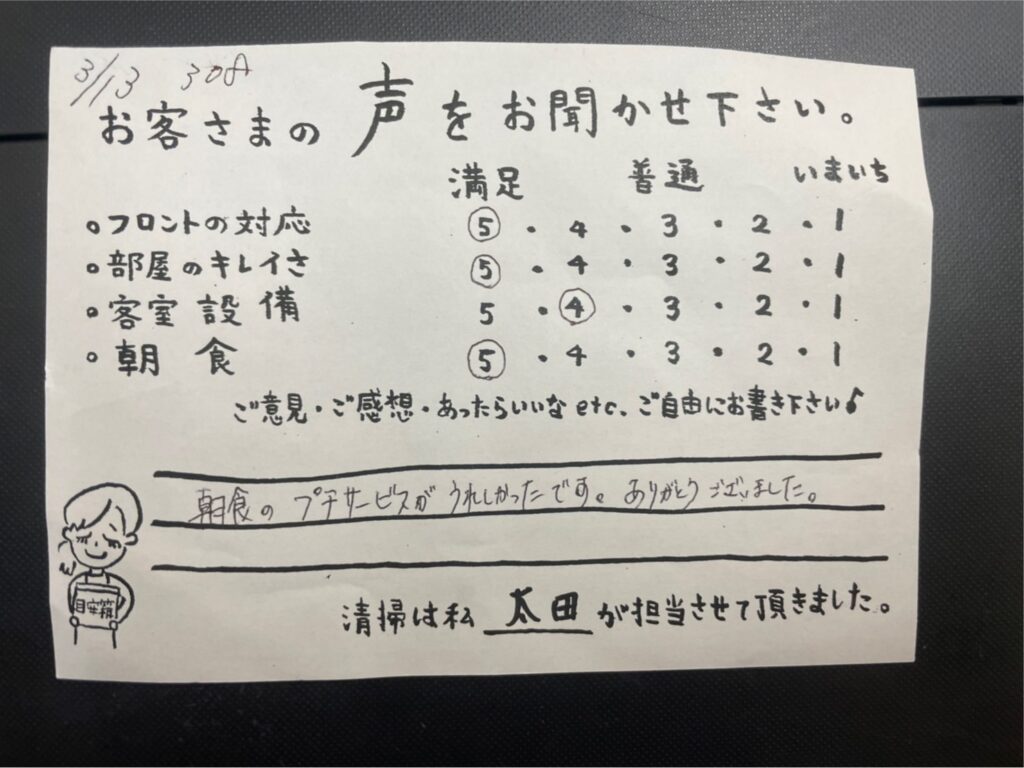 3/13 308
お客さまの声をお聞かせ下さい。
満足 普通 いまいち
。フロントの対応 5・4・3・2・1
。部屋のキレイさ 5・4・3・2・1
。客室設備 5・4・3・2・1
。朝食 5・4・3・2・1
ご意見・ご感想・あったらいいなetc、ご自由にお書き下さい♪
朝食のプチサービスがうれしかったです。ありがとうございました。
目安箱
清掃は私 太田 が担当させて頂きました。